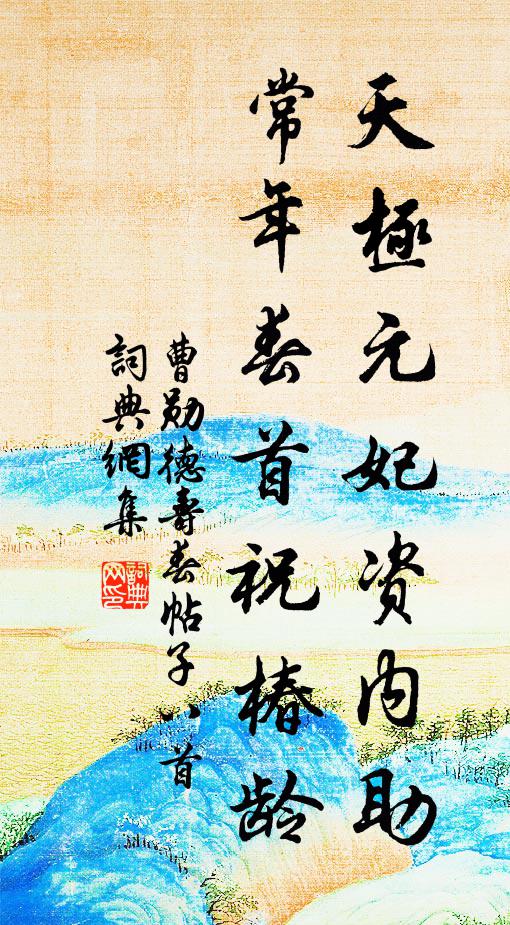 天極元妃资内助
常年春首祝椿龄
曹勛德壽春帖子八首
詞典網集
詞典网印